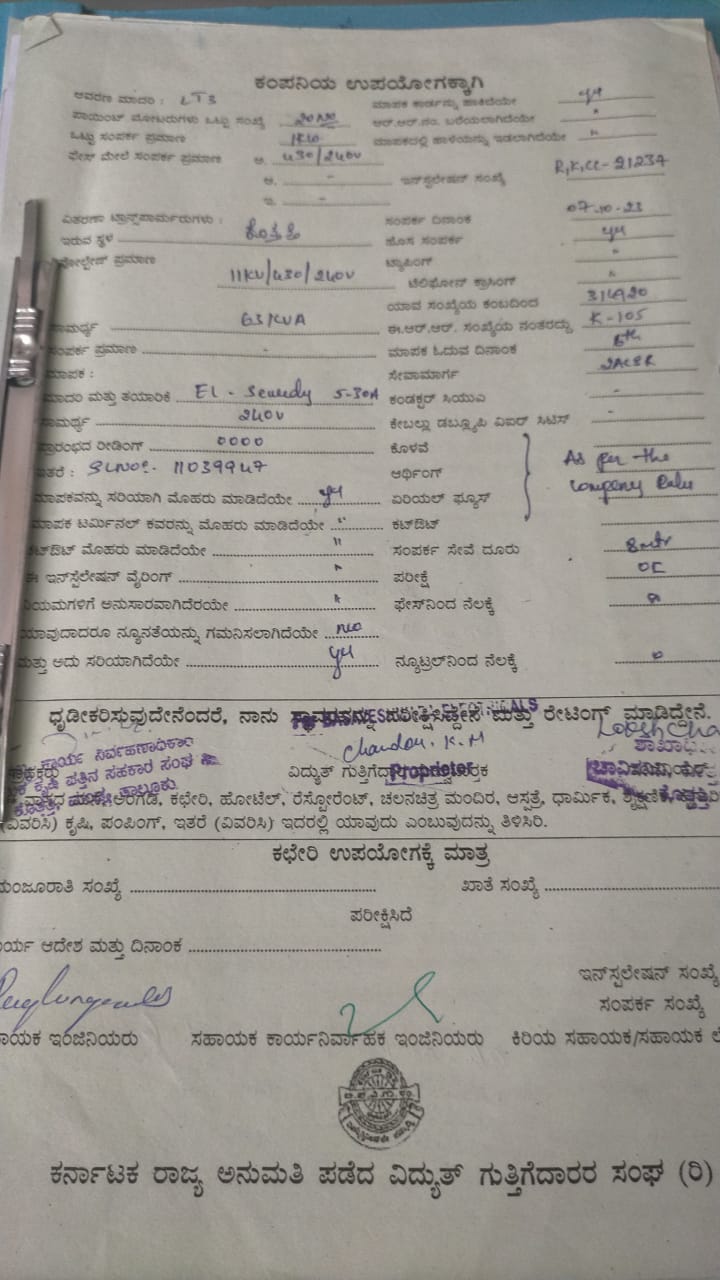 ಕಂಪನಿಯ ಉಪಯೋಗಕ್ಕಾಗಿ
ಆವರಣ ಮಾದರಿ : LT3 ಮಾಪಕ ಕಾರ್ಡನ್ನು ಹಾಕಿದೆಯೇ yes
ಪಾಯಿಂಟ್ ಮೋಟರುಗಳು ಒಟ್ಟು ಸಂಖ್ಯೆ ಆರ್.ಆರ್.ನಂ. ಬರೆಯಲಾಗಿದೆಯೇ "
ಒಟ್ಟು ಸಂಪರ್ಕ ಪ್ರಮಾಣ 1KW ಮಾಪಕದಲ್ಲಿ ಹಾಳೆಯನ್ನು ಇಡಲಾಗಿದೆಯೇ "
ಫೇಸ್ ಮೇಲೆ ಸಂಪರ್ಕ ಪ್ರಮಾಣ ಆ. 430/240V
ಆ. - ಇನ್‌ಸ್ಟಲೇಷನ್ ಸಂಖ್ಯೆ R,K,CC-21234
ಇ. -
ವಿತರಣಾ ಟ್ರಾನ್ಸ್‌ಫಾರ್ಮರುಗಳು : ಸಂಪರ್ಕ ದಿನಾಂಕ 07-10-23
ಇರುವ ಸ್ಥಳ ಕೊತ್ತತ್ತಿ ಹೊಸ ಸಂಪರ್ಕ yes
ವೋಲ್ಟೇಜ್ ಪ್ರಮಾಣ ಟ್ಯಾಪಿಂಗ್ "
11KV/430/240V ಟೆಲಿಫೋನ್ ಕ್ರಾಸಿಂಗ್ "
ಯಾವ ಸಂಖ್ಯೆಯ ಕಂಬದಿಂದ
ಸಾಮರ್ಥ್ಯ 63KVA ಈ.ಆರ್.ಆರ್. ಸಂಖ್ಯೆಯ ನಂತರದ್ದು K-105
ಸಂಪರ್ಕ ಪ್ರಮಾಣ - ಮಾಪಕ ಓದುವ ದಿನಾಂಕ
ಮಾಪಕ : ಸೇವಾಮಾರ್ಗ 2ACSR
ಮಾದರಿ ಮತ್ತು ತಯಾರಿಕೆ 5-30A ಕಂಡಕ್ಟರ್ ಸಿಯುಎ -
ಸಾಮರ್ಥ್ಯ 240V ಕೇಬಲ್ಲು ಡಬ್ಲ್ಯೂಪಿ ವಿಐರ್ ಸಿಟಿಸ್ -
ಪ್ರಾರಂಭದ ರೀಡಿಂಗ್ 0000 ಕೊಳವೆ
ಇತರೆ : SLNO: 11039947 ಅರ್ಥಿಂಗ್ As per the
ಮಾಪಕವನ್ನು ಸರಿಯಾಗಿ ಮೊಹರು ಮಾಡಿದೆಯೇ yes ಏರಿಯಲ್ ಫ್ಯೂಸ್ company Rules
ಮಾಪಕ ಟರ್ಮಿನಲ್ ಕವರನ್ನು ಮೊಹರು ಮಾಡಿದೆಯೇ " ಕಟ್‌ಔಟ್
ಕಟ್‌ಔಟ್ ಮೊಹರು ಮಾಡಿದೆಯೇ " ಸಂಪರ್ಕ ಸೇವೆ ದೂರು 8mtr
ಈ ಇನ್‌ಸ್ಟಲೇಷನ್ ವೈರಿಂಗ್ " ಪರೀಕ್ಷೆ OC
ನಿಯಮಗಳಿಗೆ ಅನುಸಾರವಾಗಿದೆರಯೇ " ಫೇಸ್‌ನಿಂದ ನೆಲಕ್ಕೆ
ಯಾವುದಾದರೂ ನ್ಯೂನತೆಯನ್ನು ಗಮನಿಸಲಾಗಿದೆಯೇ no
ಮತ್ತು ಅದು ಸರಿಯಾಗಿದೆಯೇ yes ನ್ಯೂಟ್ರಲ್‌ನಿಂದ ನೆಲಕ್ಕೆ
ಧೃಡೀಕರಿಸುವುದೇನೆಂದರೆ, ನಾನು ಸ್ಥಾವರವನ್ನು ಪರೀಕ್ಷಿಸಿದ್ದೇನೆ ಮತ್ತು ರೇಟಿಂಗ್ ಮಾಡಿದ್ದೇನೆ.
Chandan. K.M
ಕಾರ್ಯ ನಿರ್ವಹಣಾಧಿಕಾರಿ
ಕೃಷಿ ಪತ್ತಿನ ಸಹಕಾರ ಸಂಘ
ವಿದ್ಯುತ್ Proprietor
ಅಂಗಡಿ, ಕಛೇರಿ, ಹೋಟೆಲ್, ರೆಸ್ಟೋರೆಂಟ್, ಚಲನಚಿತ್ರ ಮಂದಿರ, ಆಸ್ಪತ್ರೆ, ಧಾರ್ಮಿಕ,
(ವಿವರಿಸಿ) ಕೃಷಿ, ಪಂಪಿಂಗ್, ಇತರೆ (ವಿವರಿಸಿ) ಇದರಲ್ಲಿ ಯಾವುದು ಎಂಬುವುದನ್ನು ತಿಳಿಸಿರಿ.
ಕಛೇರಿ ಉಪಯೋಗಕ್ಕೆ ಮಾತ್ರ
ಮಂಜೂರಾತಿ ಸಂಖ್ಯೆ ಖಾತೆ ಸಂಖ್ಯೆ
ಪರೀಕ್ಷಿಸಿದೆ
ಕಾರ್ಯ ಆದೇಶ ಮತ್ತು ದಿನಾಂಕ
ಇನ್‌ಸ್ಟಲೇಷನ್ ಸಂಖ್ಯೆ
ಸಂಪರ್ಕ ಸಂಖ್ಯೆ
ಸಹಾಯಕ ಇಂಜಿನಿಯರು ಸಹಾಯಕ ಕಾರ್ಯನಿರ್ವಾಹಕ ಇಂಜಿನಿಯರು ಕಿರಿಯ ಸಹಾಯಕ/ಸಹಾಯಕ
ಕರ್ನಾಟಕ ರಾಜ್ಯ ಅನುಮತಿ ಪಡೆದ ವಿದ್ಯುತ್ ಗುತ್ತಿಗೆದಾರರ ಸಂಘ (ರಿ)